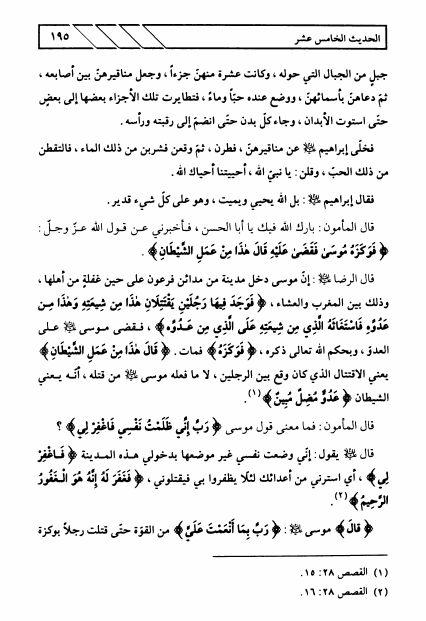 الحديث الخامس عشر
١٩٥
جبلٍ من الجبال التي حوله ، وكانت عشرة منهنّ جزءاً ، وجعل مناقيرهنّ بين أصابعه ،
ثمّ دعاهنّ بأسمائهنّ ، ووضع عنده حبّاً وماءً ، فتطايرت تلك الأجزاء بعضها إلى بعضٍ
حتّى استوت الأبدان ، وجاء كلّ بدن حتّى انضمّ إلى رقبته ورأسه .
فخلّى إبراهيم ﷺ عن مناقيرهنّ ، فطرن ، ثمّ وقعن فشربن من ذلك الماء ، فالتقطن
من ذلك الحبّ ، وقلن : يا نبيّ الله ، أحييتنا أحياك الله .
فقال إبراهيم ﷺ : بل الله يحيي ويميت ، وهو على كلّ شيء قدير .
قال المأمون : بارك الله فيك يا أبا الحسن ، فأخبرني عن قول الله عزّ وجلّ :
﴿ فَوَكَزَهُ مُوسَىٰ فَقَضَىٰ عَلَيْهِ قَالَ هٰذَا مِنْ عَمَلِ الشَّيْطَانِ ﴾ .
قال الرضا ﷺ : إنّ موسى دخل مدينة من مدائن فرعون على حين غفلةٍ من أهلها ،
وذلك بين المغرب والعشاء ، ﴿ فَوَجَدَ فِيهَا رَجُلَيْنِ يَقْتَتِلَانِ هٰذَا مِن شِيعَتِهِ وَهٰذَا مِنْ
عَدُوِّهِ فَاسْتَغَاثَهُ الَّذِي مِن شِيعَتِهِ عَلَى الَّذِي مِنْ عَدُوِّهِ ﴾ ، فقضى موسى ﷺ على
العدوّ ، وبحكم الله تعالى ذكره ، ﴿ فَوَكَزَهُ ﴾ فمات . ﴿ قَالَ هٰذَا مِنْ عَمَلِ الشَّيْطَانِ ﴾
يعني الاقتتال الذي كان وقع بين الرجلين ، لا ما فعله موسى ﷺ من قتله ، أنّه يعني
الشيطان ﴿ عَدُوٌّ مُضِلٌّ مُبِينٌ ﴾ (١) .
قال المأمون : فما معنى قول موسى ﴿ رَبِّ إِنِّي ظَلَمْتُ نَفْسِي فَاغْفِرْ لِي ﴾ ؟
قال ﷺ يقول : إنّي وضعت نفسي غير موضعها بدخولي هذه المدينة ﴿ فَاغْفِرْ
لِي ﴾ ، أي استرني من أعدائك لئلّا يظفروا بي فيقتلوني ، ﴿ فَغَفَرَ لَهُ إِنَّهُ هُوَ الْغَفُورُ
الرَّحِيمُ ﴾ (٢) .
﴿ قَالَ ﴾ موسى ﷺ : ﴿ رَبِّ بِمَا أَنْعَمْتَ عَلَيَّ ﴾ من القوّة حتّى قتلت رجلاً بوكزة
(١) القصص ٢٨ : ١٥ .
(٢) القصص ٢٨ : ١٦ .